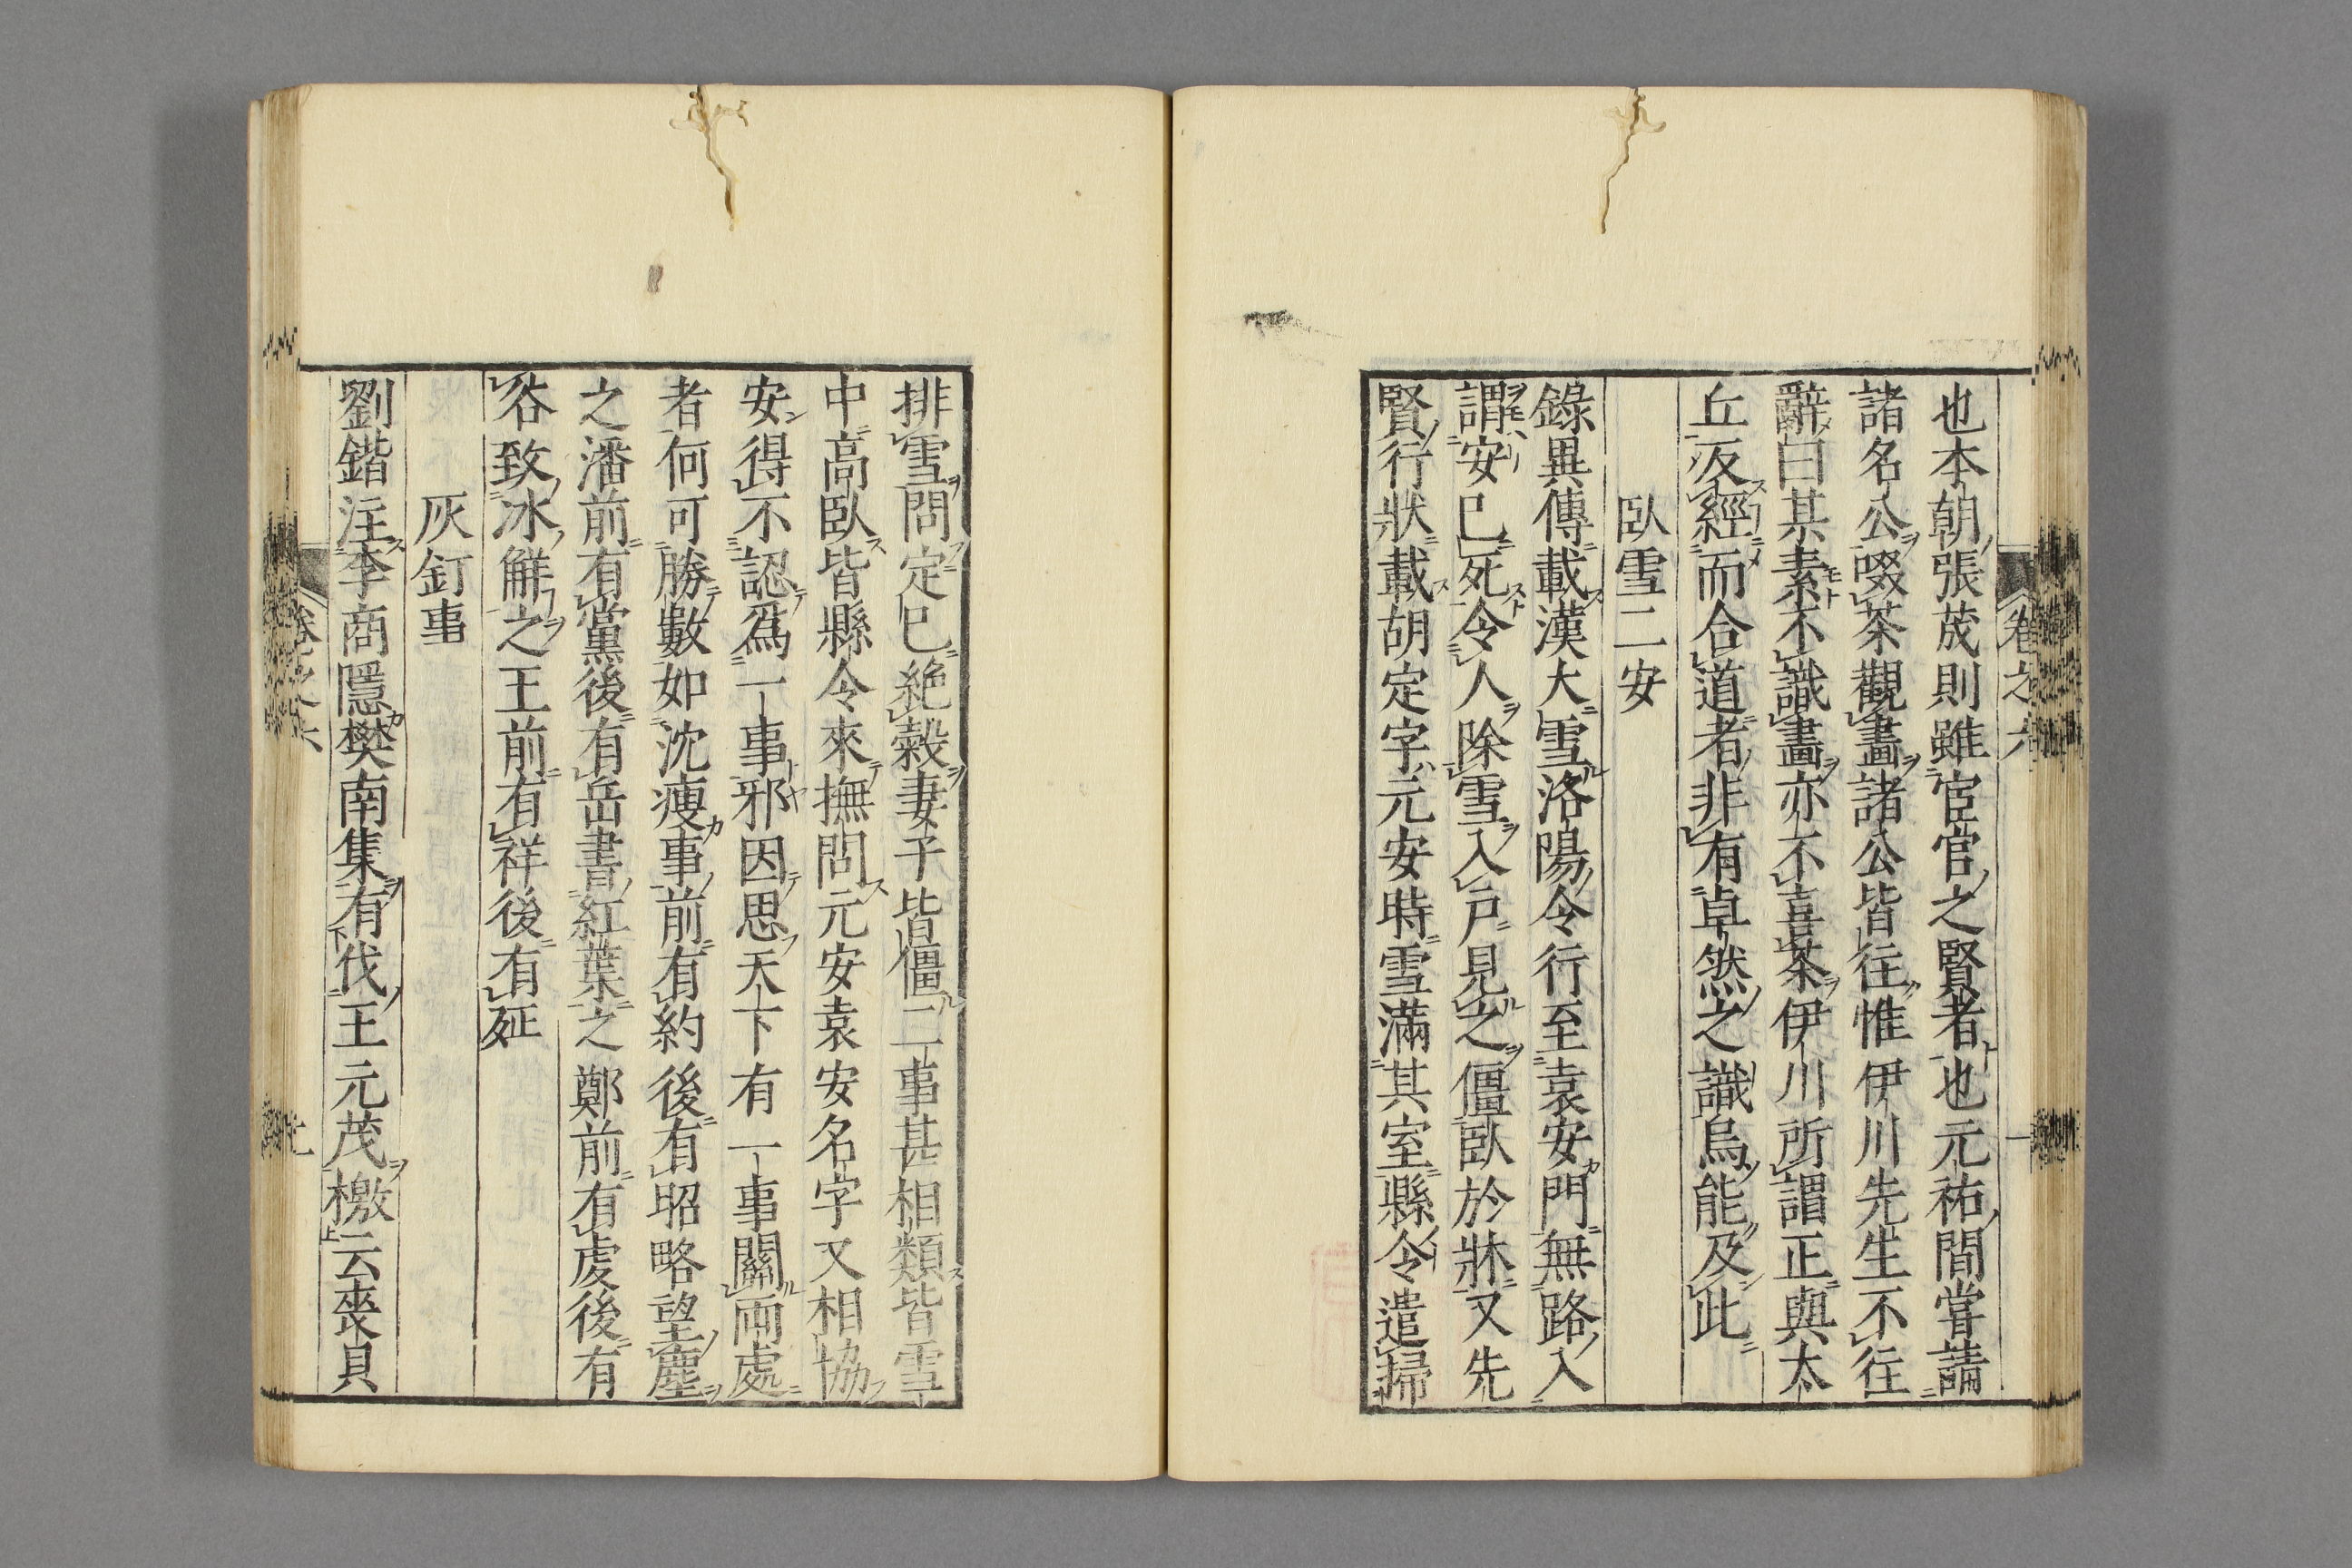 也本朝張茂則雖宦官之賢者也元祐間甞請
諸名公啜茶觀畫諸公皆往惟伊川先生不往
辭曰某素不識畫亦不喜茶伊川所謂正與太
丘反經而合道者非有卓然之識烏能及此
臥雪二安
錄異傳載漢大雪洛陽令行至袁安門無路入
謂安已死令人除雪入戸見之僵臥於牀又先
賢行狀載胡定字元安時雪滿其室縣令遣掃
排雪問定已絶穀妻子皆僵二事甚相類皆雪
中高臥皆縣令來撫問元安袁安名字又相協
安得不認爲一事邪因思天下有一事關兩處
者何可勝數如沈瘦事前有約後有昭略望塵
之潘前有黨後有岳書紅葉之鄭前有虔後有
谷致冰鮮之王前有祥後有延
灰釘事
劉鍇注李商隱樊南集有伐王元茂檄云喪貝
卷之六